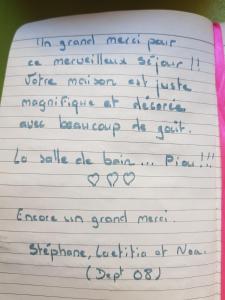 Un grand merci pour
ce merveilleux séjour !!
Votre maison est juste
magnifique et décorée
avec beaucoup de goût.
La salle de bain... Piou !!!
♡ ♡ ♡
Encore un grand merci.
Stéphane, Laetitia et Noa.
(Dept 08)